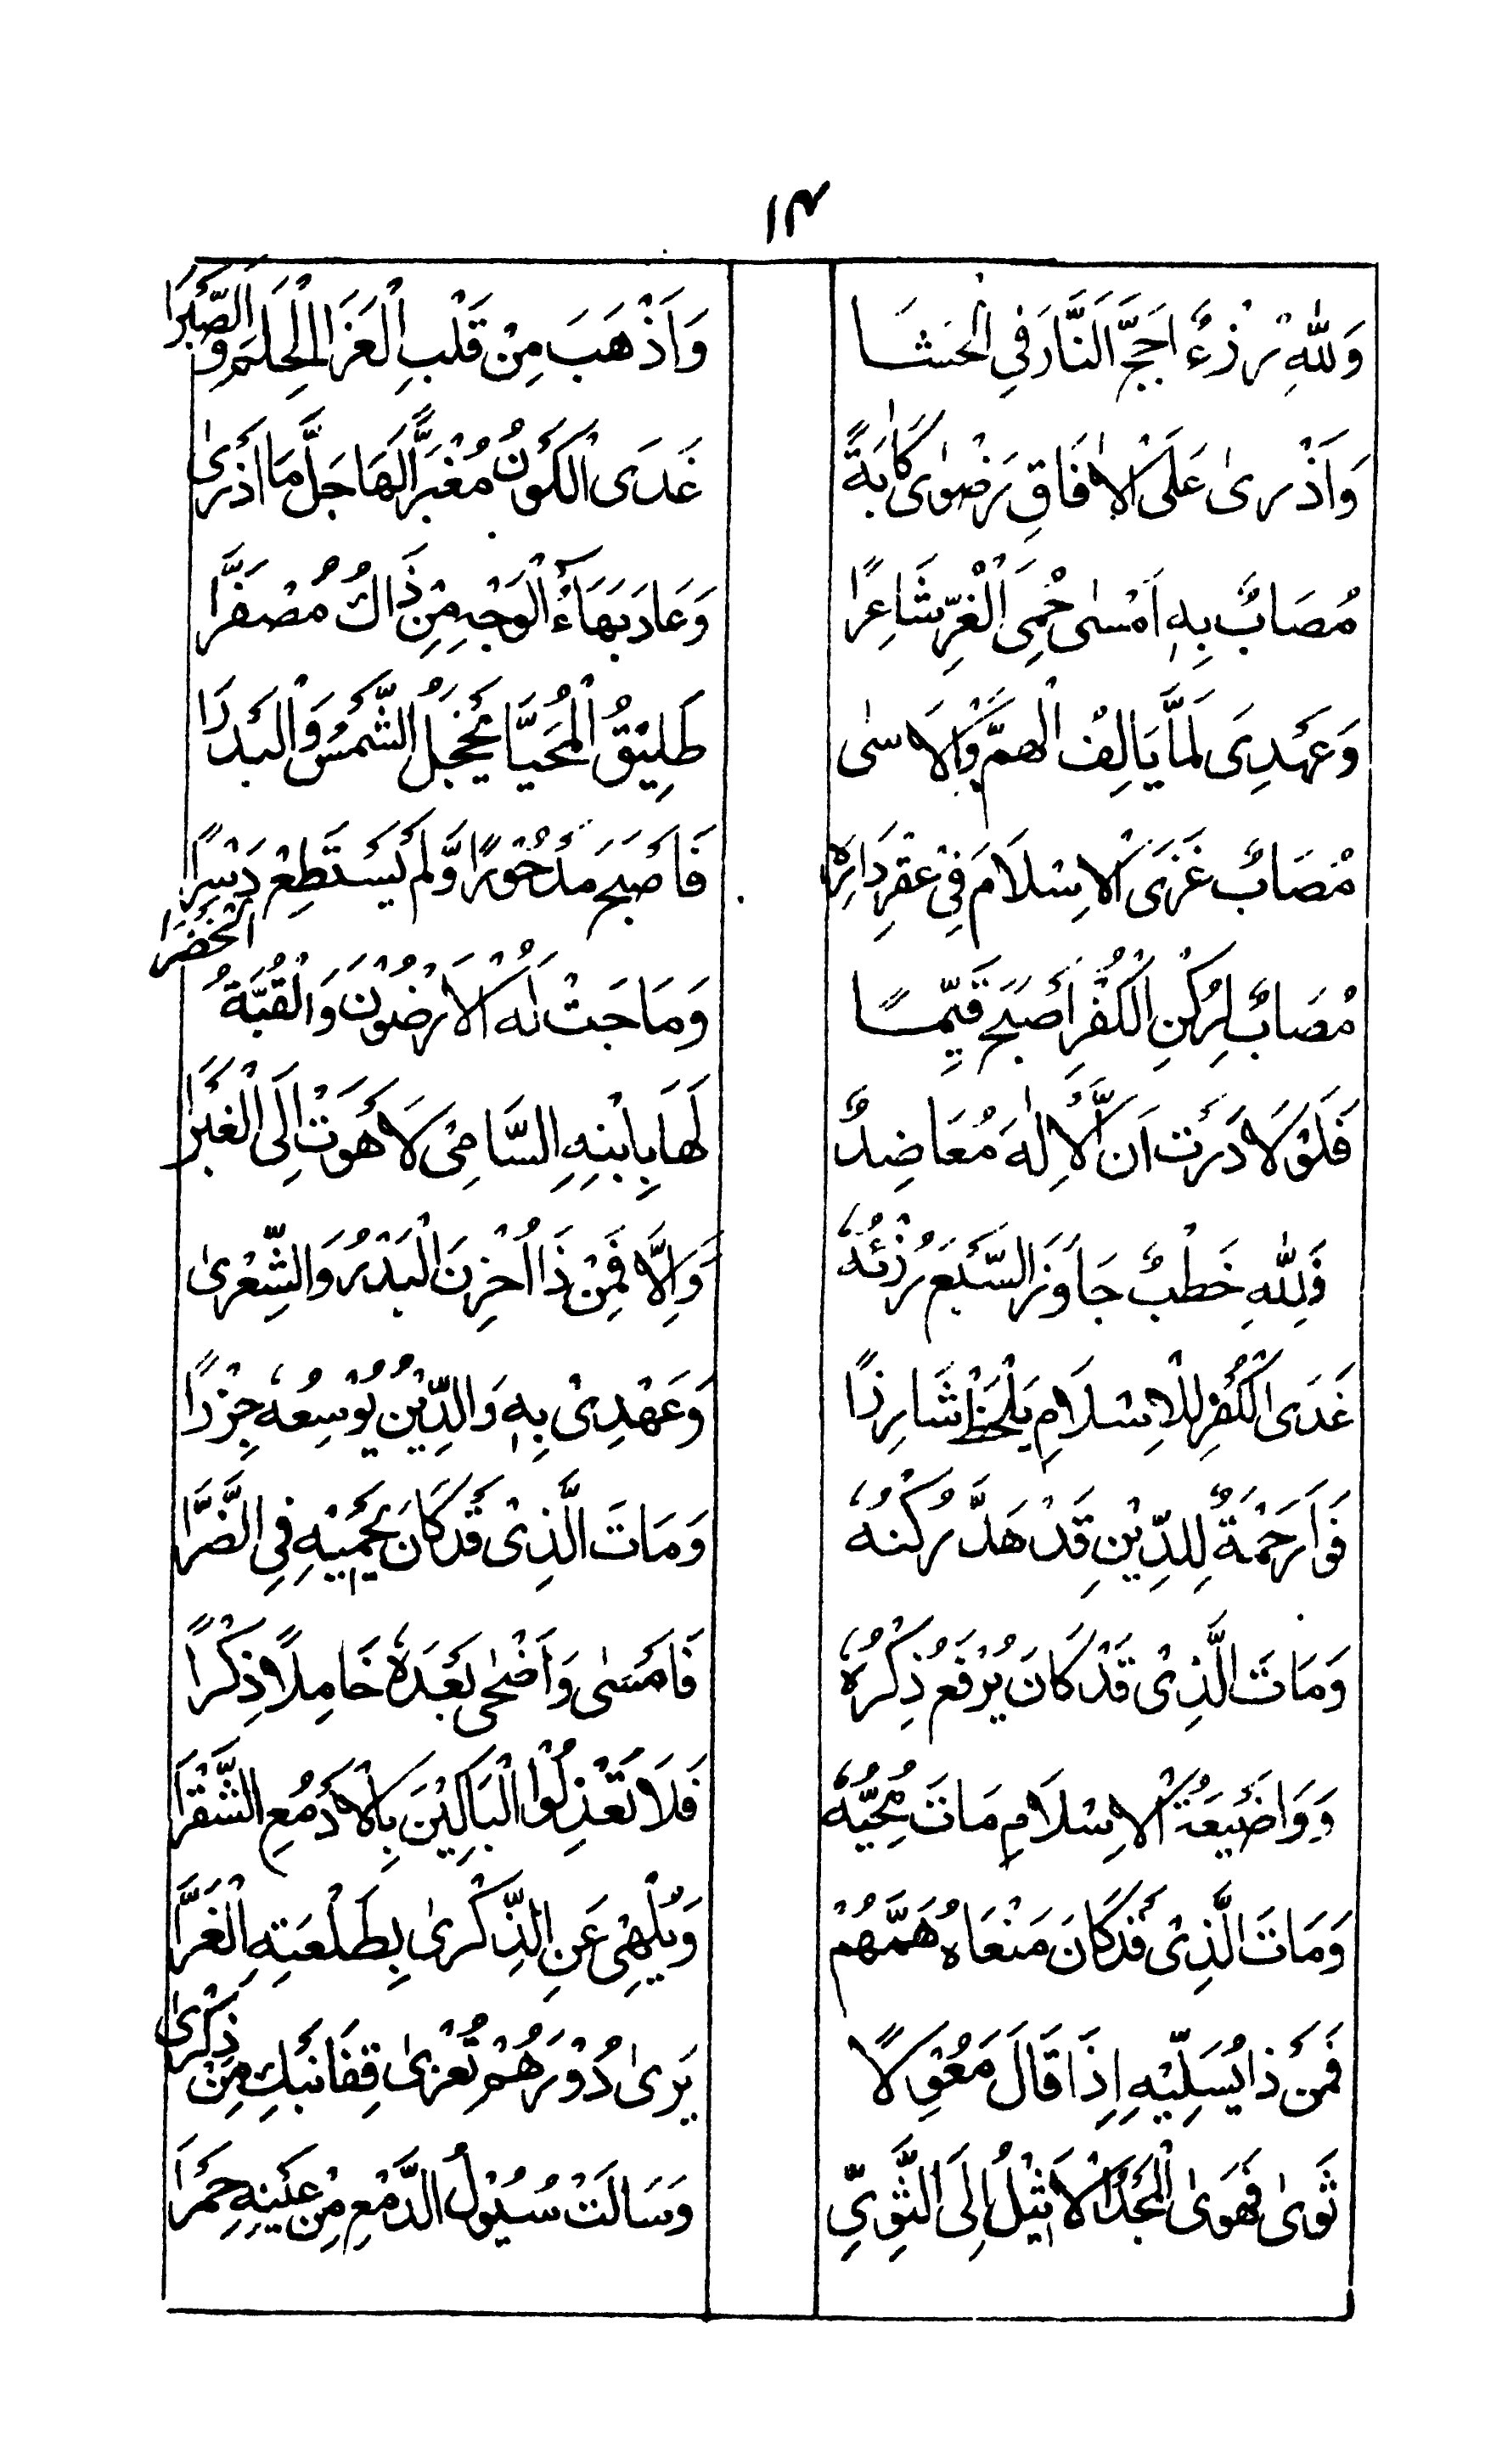 ١٣
وَلِلّٰهِ رُزْءٌ اَجَّجَ النَّارَ فِي الْحَشَا وَاَذْهَبَ مِنْ قَلْبِ الْعَزَا الْحِلْمَ وَالصَّبْرَا
وَاَذْرىٰ عَلَى الْاٰفَاقِ رَضْوٰى كَاٰبَةً غَدَى الْكَوْنُ مُغْبَرًّا لَهَا جَلَّ مَا اَذْرىٰ
مُصَابٌ بِهٖ اَمْسٰى حُمِىَ الْغِرِّ شَاعِرًا وَعَادَ بَهَاءُ الْوَجْهِ مِنْ ذَاكُ مُصْفَرَّا
وَعَهْدِىَ لَمَّا يَالِفُ الْهَمَّ وَالْاَسٰى طَلِيْقُ الْمُحَيَّا يُخْجِلُ الشَّمْسَ وَالْبَدْرَا
مُصَابٌ غَزَى الْاِسْلَامَ فِيْ عُقْرِ دَارِهٖ فَاَصْبَحَ مَدْحُوْرًا وَّلَمْ يَسْتَطِعْ دَسْرًا
مُصَابٌ لِرُكْنِ الْكُفْرِ اَصْبَحَ قَيِّمًا وَمَا جَتْ لَهُ الْاَرْضُوْنَ وَالْقُبَّةُ الْخَضْرَا
فَلَوْلَا دَرَتْ اَنَّ الْاِلٰهَ مُعَاضِدٌ لَهَا بِابْنِهِ السَّامِىْ لَاهَوَتْ اِلَى الْغَبْرَا
فَلِلّٰهِ خَطْبٌ جَاوَزَ السَّبْعَ رُزْئُهٗ وَاِلَّا فَمِنْ ذَا اُحْزِنَ الْبَدْرُ وَالشِّعْرىٰ
غَدَى الْكُفْرِ لِلْاِسْلَامِ يَلْحَظُ شَازِرًا وَعَهْدِىْ بِهٖ وَالدِّيْنُ يُوْسِعُهٗ جِزْرًا
فَوَا رَحْمَةٌ لِلدِّيْنِ قَدْ هَدَّ رُكْنُهٗ وَمَاتَ الَّذِىْ قَدْ كَانَ يَحْمِيْهِ فِى الضَّرَّا
وَمَاتَ الَّذِىْ قَدْ كَانَ يُرْفَعُ ذِكْرُهٗ فَاَمْسٰى وَاَضْحٰى بَعْدَهٗ خَامِلًا ذِكْرًا
وَوَاضَيْعَةُ الْاِسْلَامِ مَاتَ مُحِبُّهٗ فَلَا تَعْذِلُوْا الْبَاكِيْنَ بِالْاَدْمُعِ الشَّقْرَا
وَمَاتَ الَّذِىْ قَدْ كَانَ مَنْعَاهُ هَمَّهُمْ وَيُلْهِىْ عَنِ الذِّكْرىٰ بِطَلْعَتِهِ الْغَرَّا
فَمَنْ ذَا يُسَلِّيْهِ اِذَا قَالَ مَعُوْلًا يَرىٰ دُوْرَهُمْ تُعْزىٰ قِفَا نَبْكِ مِنْ ذِكْرىٰ
ثَوىٰ فَهَوَى الْمَجْدُ الْاَثِيْلُ اِلَى الثَّوِيّ وَسَالَتْ سُيُوْلُ الدَّمْعِ مِنْ عَيْنِهِ حَمْرَا